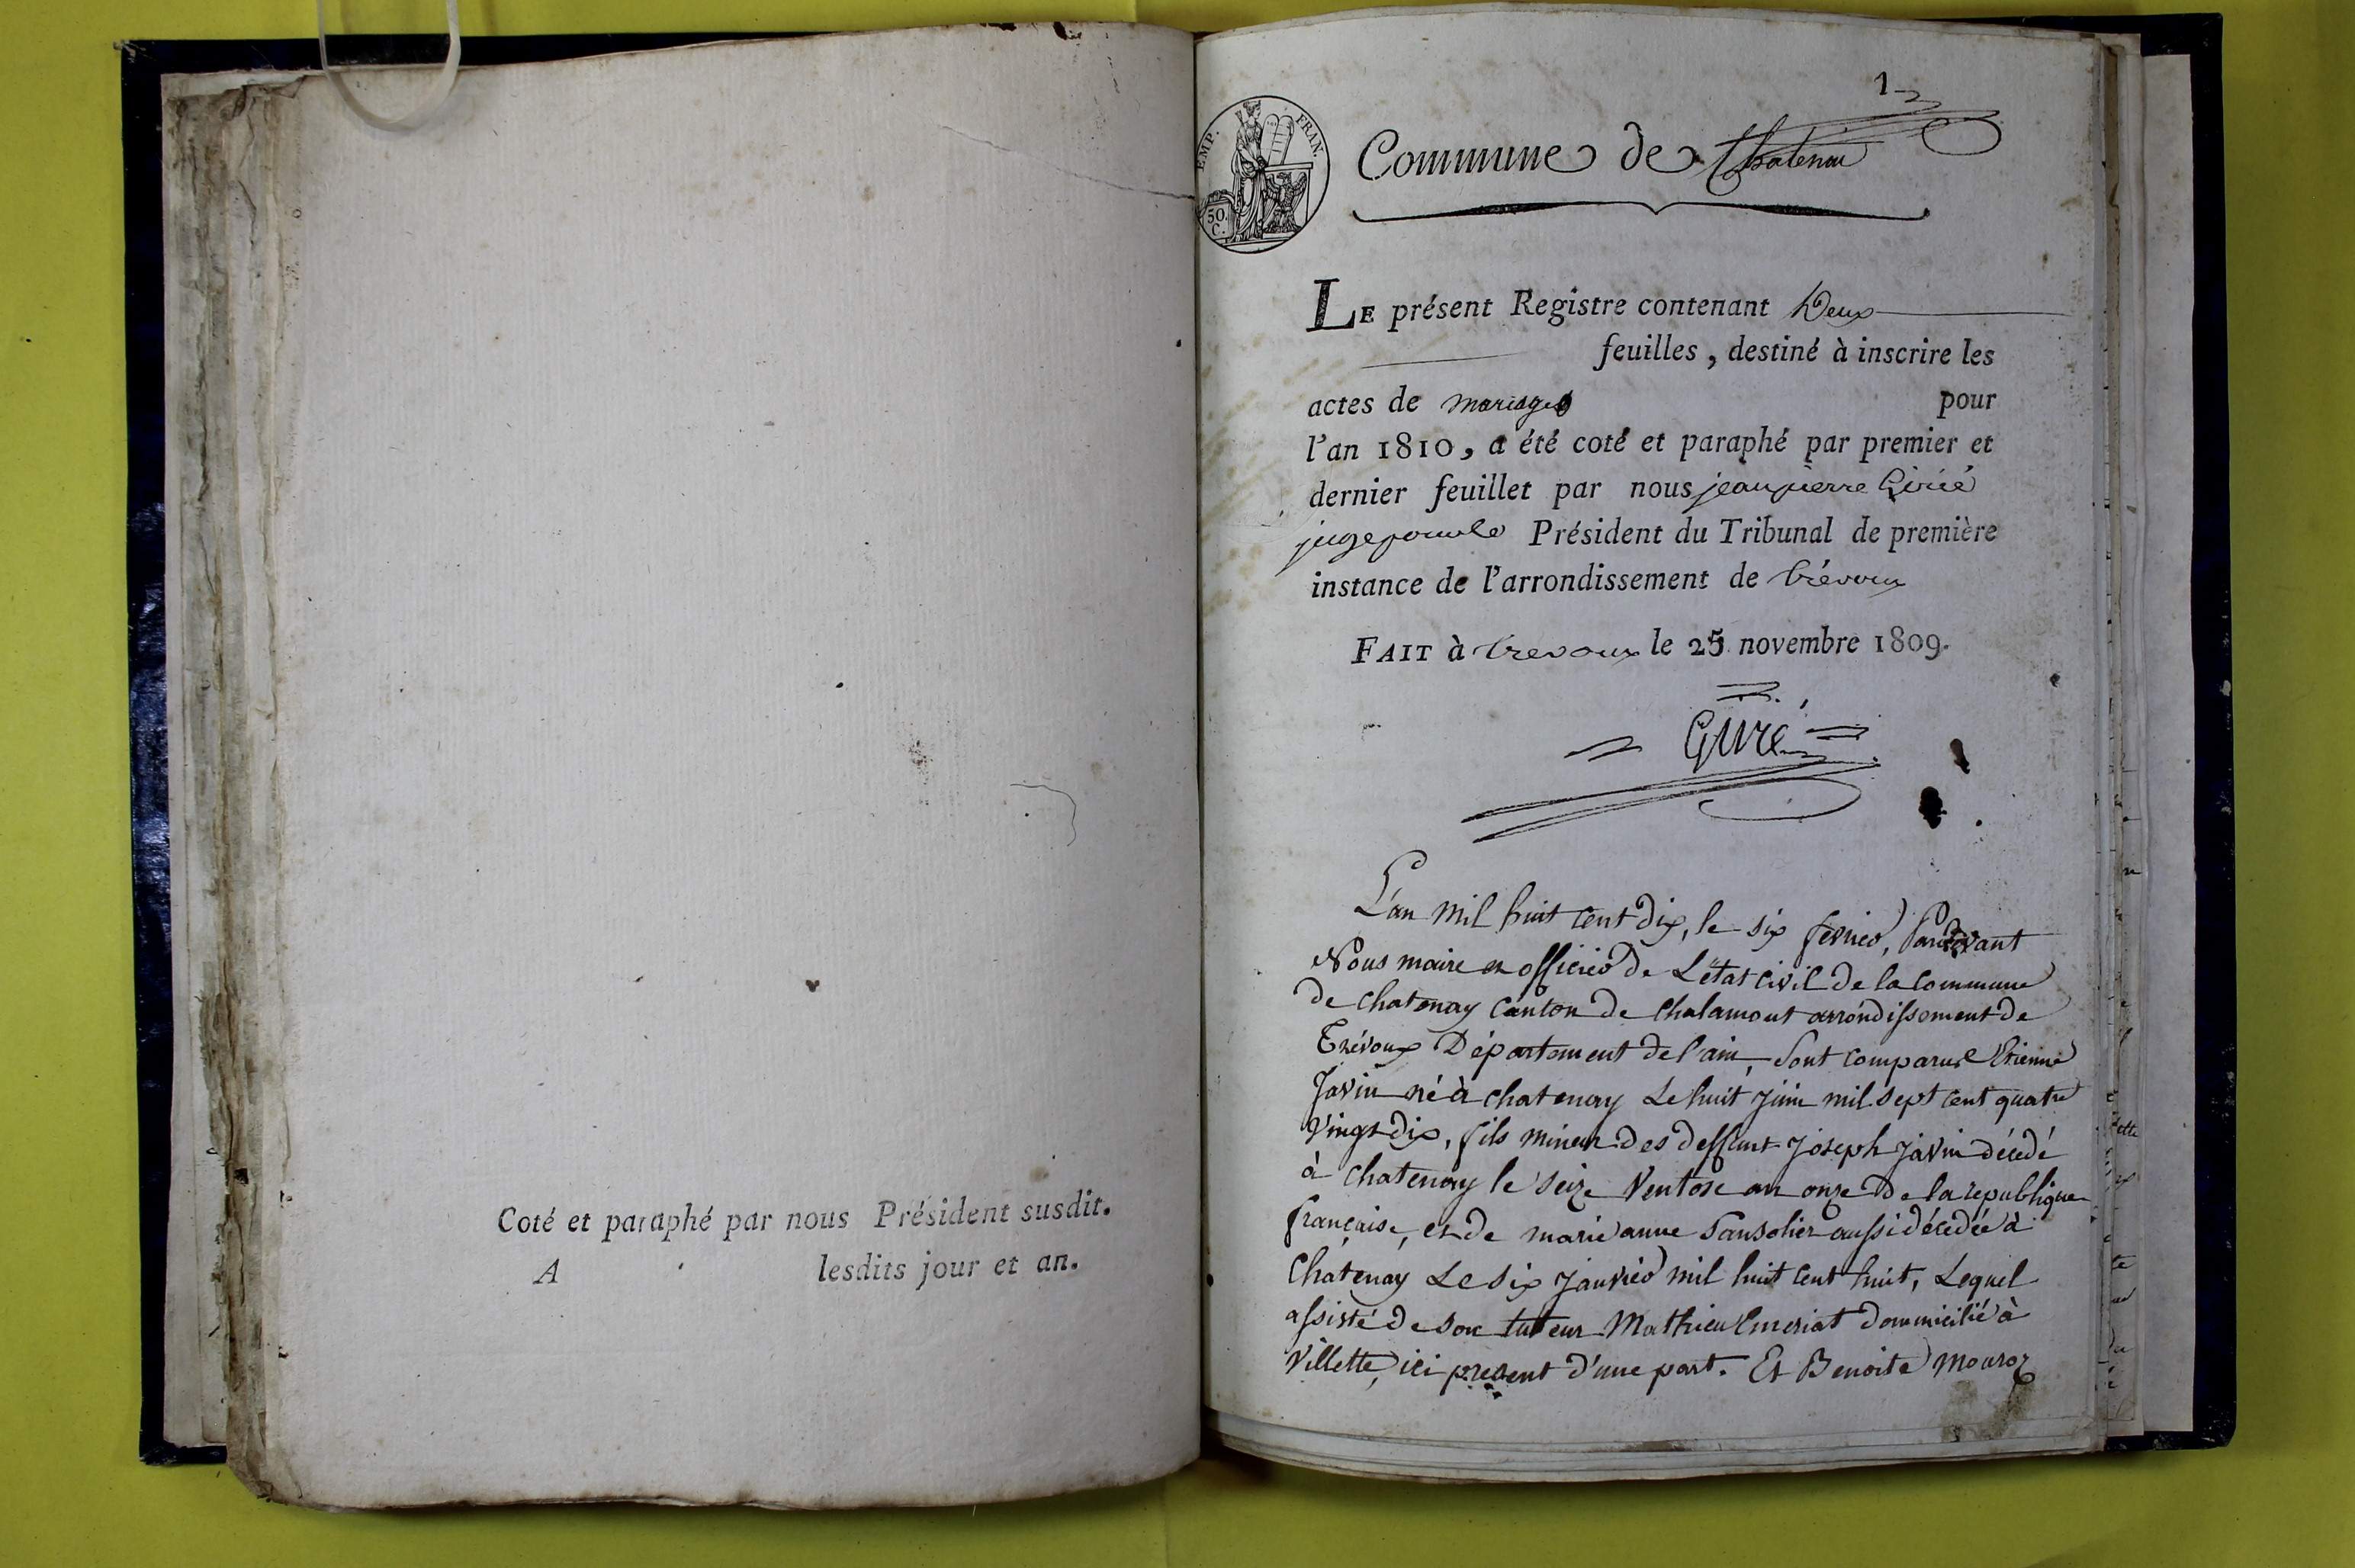 Coté et paraphé par nous Président susdit.
A lesdits jour et an.
1
EMP. FRAN.
50 C.
Commune de Chatenay
LE présent Registre contenant Deux
feuilles, destiné à inscrire les
actes de mariages pour
l'an 1810, a été coté et paraphé par premier et
dernier feuillet par nous jean pierre Girié
juge pour le Président du Tribunal de première
instance de l'arrondissement de trévoux
FAIT à trevoux le 25 novembre 1809.
Girié
L'an mil huit cent dix, le six fevrier, Pardevant
Nous maire et officier de L'état civil de la commune
de chatenay canton de chalamont arrondissement de
Trévoux Département de l'ain, sont comparus Etienne
Javin né à chatenay Le huit juin mil sept cent quatre
vingt dix, fils mineur des deffunt joseph javin décédé
à chatenay le seize Ventose an onze de la republique
française, et de marie anne Sansolier aussi décédée à
Chatenay Le six janvier mil huit cent huit, Lequel
assisté de son tuteur Mathieu Emeriat dommicilié à
Villette, ici present d'une part. Et Benoite Mouroz